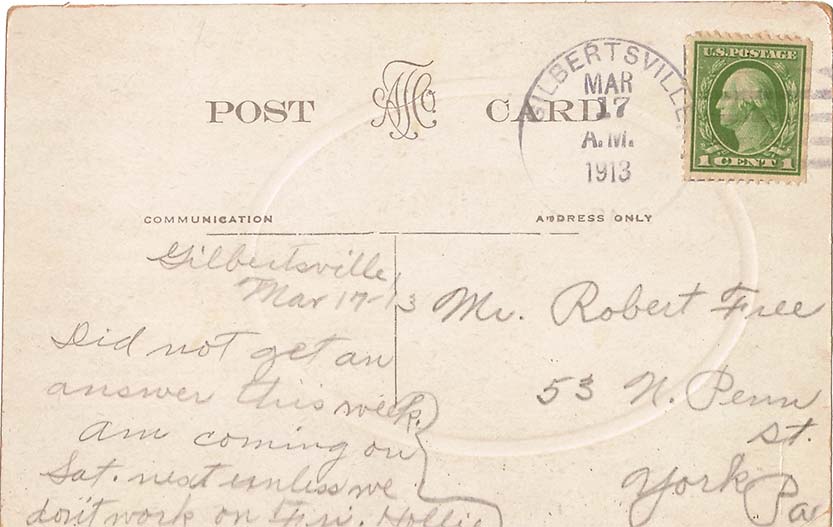 POST CARD
GILBERTSVILLE
MAR
17
A.M.
1913
U.S.POSTAGE
1 CENT 1
COMMUNICATION
ADDRESS ONLY
Gilbertsville,
Mar 17-13
Did not get an
answer this week.
am coming on
Sat. next unless we
don't work on Fri. Hollie
Mr. Robert Free
53 N. Penn
St.
York Pa